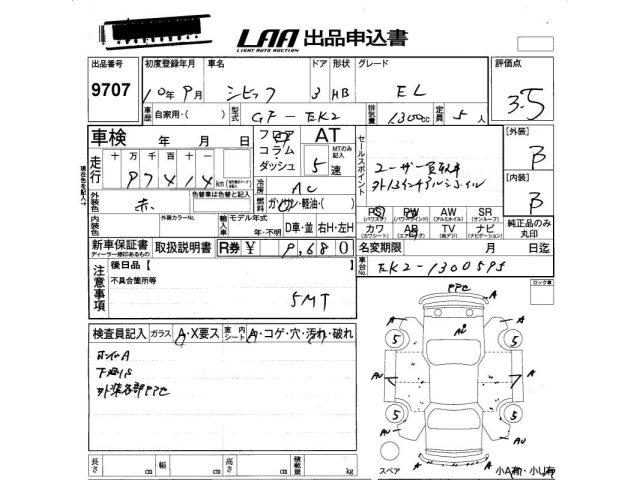 LAA 出品申込書
LIGHT AUTO AUCTION
出品番号 初度登録年月 車名 ドア 形状 グレード 評価点
9707 10年9月 シビック 3 HB EL 3.5
車歴 自家用・( ) 型式 GF-EK2 排気量 1300cc 定員 5人
車検 年 月 日 フロア コラム・ダッシュ AT 5速 MTのみ記入
走行 十 万 千 百 十 一
97414 km
セールスポイント
ユーザー買取車
外13インチアルミホイル
[外装]
B
[内装]
B
外装色 赤 色替車は色替と記入 冷房 AC
燃料 ガソリン・軽油・( )
PS PW AW SR
(パワステ) (パワーウインド) (アルミホイル) (サンルーフ)
カワ AB TV ナビ
(カワシート) (エアバッグ) (地デジ) (ナビゲーション)
純正品のみ丸印
内装色 外装カラーNo. 輸入車 モデル年式 年・不明 D車・並 右H・左H
新車保証書 取扱説明書 R券 ¥ 9,680
ディーラー捺印あるもの
名変期限 月 日迄
車台No. EK2-1300595
注意事項 後日品【
不具合箇所等
5MT
ロック車
検査員記入 ガラス A・X要ス 室内シート A・コゲ・穴・汚れ・破れ
ホイルA
下廻りS
外装各部PPC
PPC
A A
A A
Ai
5 5
AU A
5 5
AU AU
A
長さ cm 幅 cm 高さ cm 積載量 kg
スペア 小A有・小U有
現在色を記入